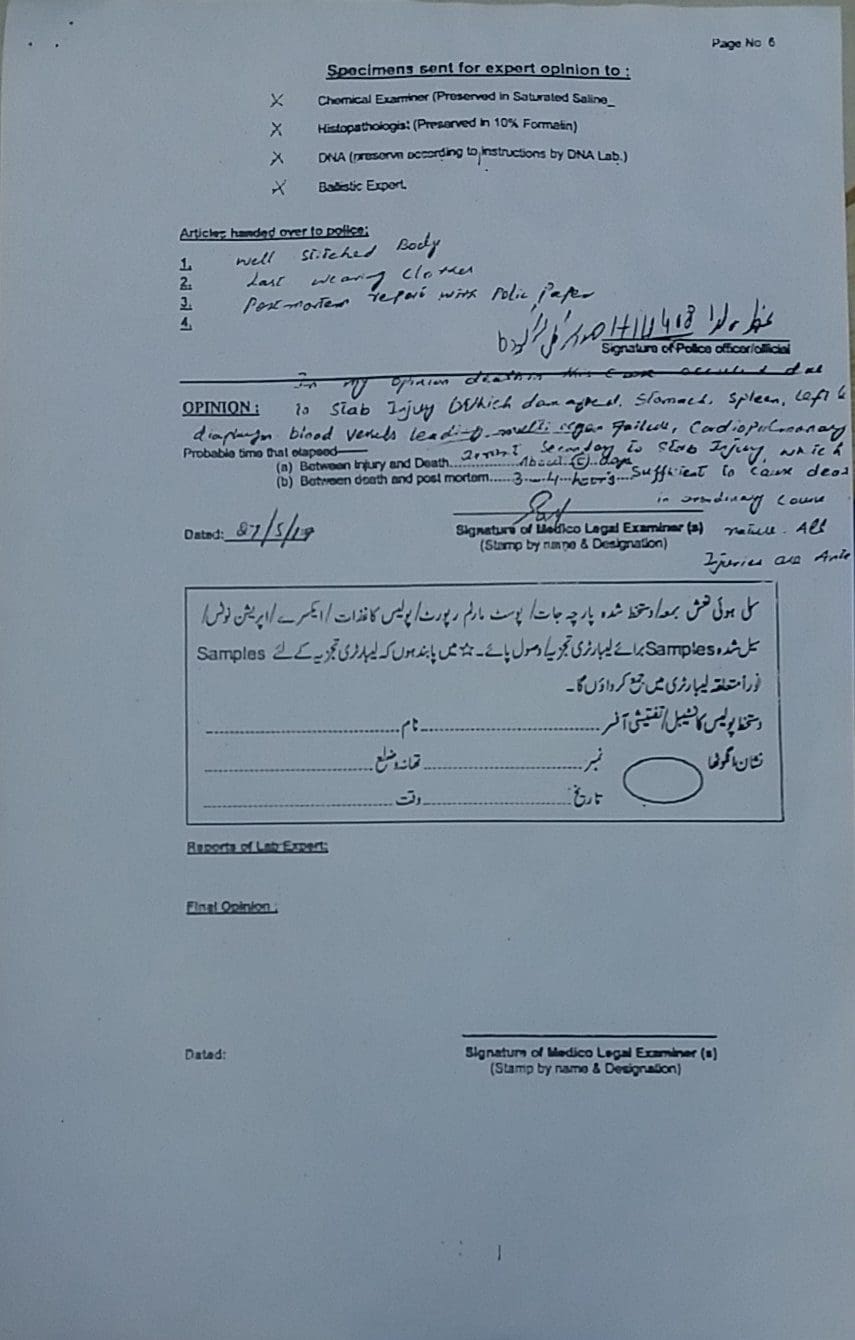 Page No 6
Specimens sent for expert opinion to :
X Chemical Examiner (Preserved in Saturated Saline_
X Histopathologist (Preserved in 10% Formalin)
X DNA (preserve according to instructions by DNA Lab.)
X Ballistic Expert.
Articles handed over to police:
1. well stitched Body
2. Last wearing Clothes
3. Postmortem report with Polic Paper
4.
Signature of Police officer/official
In my opinion death in this case occurred due
OPINION : to Stab Injury Which damaged, Stomach, Spleen, Left
diaphragm blood vessels leading multi organ failure, Cardiopulmonary
arrest Secondary to Stab Injury, which
Probable time that elapsed
(a) Between Injury and Death About days
Sufficient to cause
(b) Between death and post mortem 3-4 hours
in ordinary course
Dated: 27/5/19
Signature of Medico Legal Examiner (s) nature. All
(Stamp by name & Designation)
Injuries are Ante
سلی ہوئی نعش بمعہ/دستخط شدہ پارچہ جات/ پوسٹ مارٹم رپورٹ/پولیس کاغذات/ایکسرے/اپریشن نوٹس/
سیل شدہ Samples برائے لیبارٹری تجزیہ/وصول پائے۔ ☆ میں پابند ہوں کہ لیبارٹری تجزیہ کے لئے Samples
فوراً متعلقہ لیبارٹری میں جمع کرواؤں گا۔
دستخط پولیس کانسٹیبل/تفتیشی آفسر نام
نشان انگوٹھا نمبر تھانہ و ضلع
تاریخ وقت
Reports of Lab Expert:
Final Opinion :
Dated:
Signature of Medico Legal Examiner (s)
(Stamp by name & Designation)